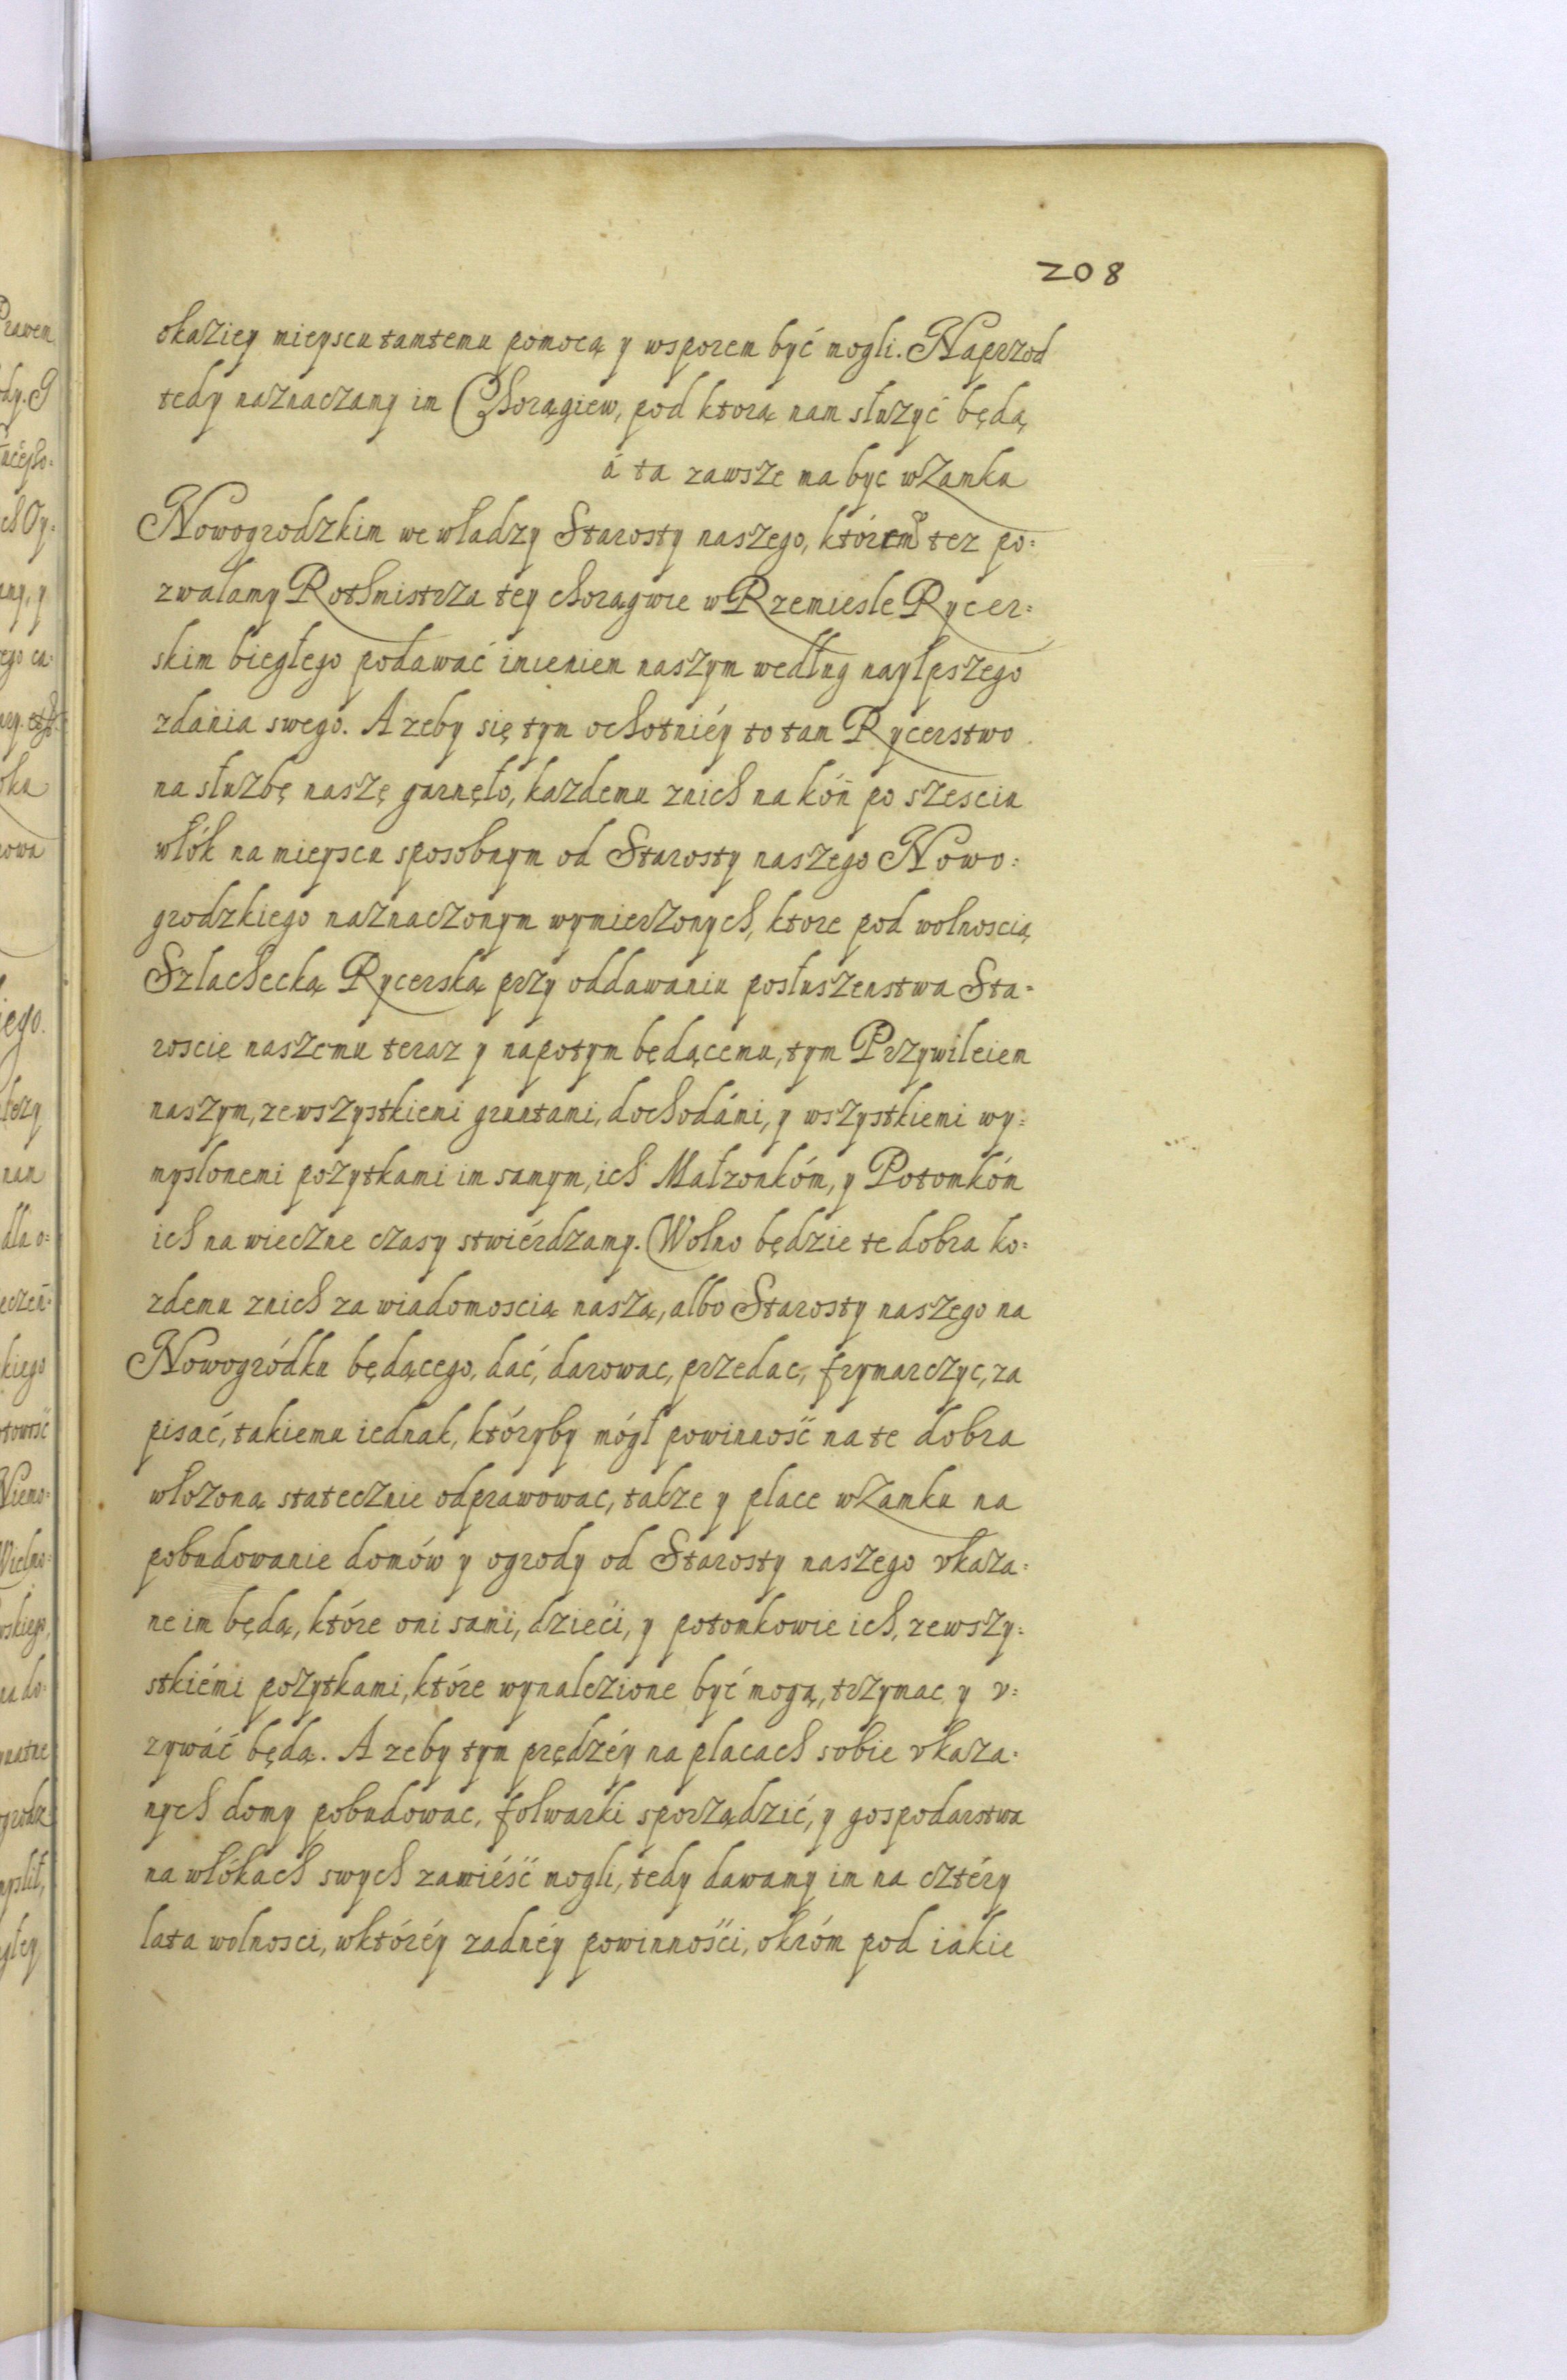 208
okaziey mieyscu tamtemu pomocą y wsporem być mogli. Naprzod
tedy naznaczamy im Chorągiew, pod ktorą nam służyć będą
á ta zawsze ma byc wZamku
Nowogrodzkim we władzy Starosty naszego, którem̃ tez po=
zwalamy Rothmistrza tey chorągwie w Rzemiesle Rycer=
skim biegłego podawać imieniem naszym według naylpszego
zdánia swego. A zeby się tym ochotniéy to tam Rycerstwo
na służbę naszę garnęło, kazdemu znich na kóń po szesciu
włók na mieyscu sposobnym od Starosty naszego Nowo=
grodzkiego naznaczonym wymierzonych, ktore pod wolnoscią
Szlachecką Rycerską przy oddawaniu posłuszenstwa Sta=
roscie naszemu teraz y napotym będącemu, tym Przywileiem
naszym, zewszystkiemi gruntami, dochodámi, y wszystkiemi wy=
myslonemi pozytkami im samym, ich Małzonkóm, y Potomkóm
ich na wieczne czasy stwiérdzamy. Wolno będzie te dobra ko=
zdemu znich za wiadomoscią naszą, albo Starosty naszego na
Nowogródku będącego, dać, darowac, przedac, frymarczyc, za
pisać, takiemu iednak, któryby mógł powinność na te dobra
włozoną statecznie odprawowac, takze y place wZamku na
pobudowanie domów y ogrody od Starosty naszego vkaza=
ne im będą, które oni sami, dzieci, y potomkowie ich, zewszy=
stkiémi pozytkami, które wynalezione być mogą, trzymac y v=
zywáć będą. A zeby tym prędzéy na placach sobie vkaza=
nych domy pobudowac, folwarki sporządzić, y gospodarstwa
na włókach swych zawiéść mogli, tedy dawamy im na cztéry
lata wolnosci, wktóréy zadnéy powinności, okróm pod iakie